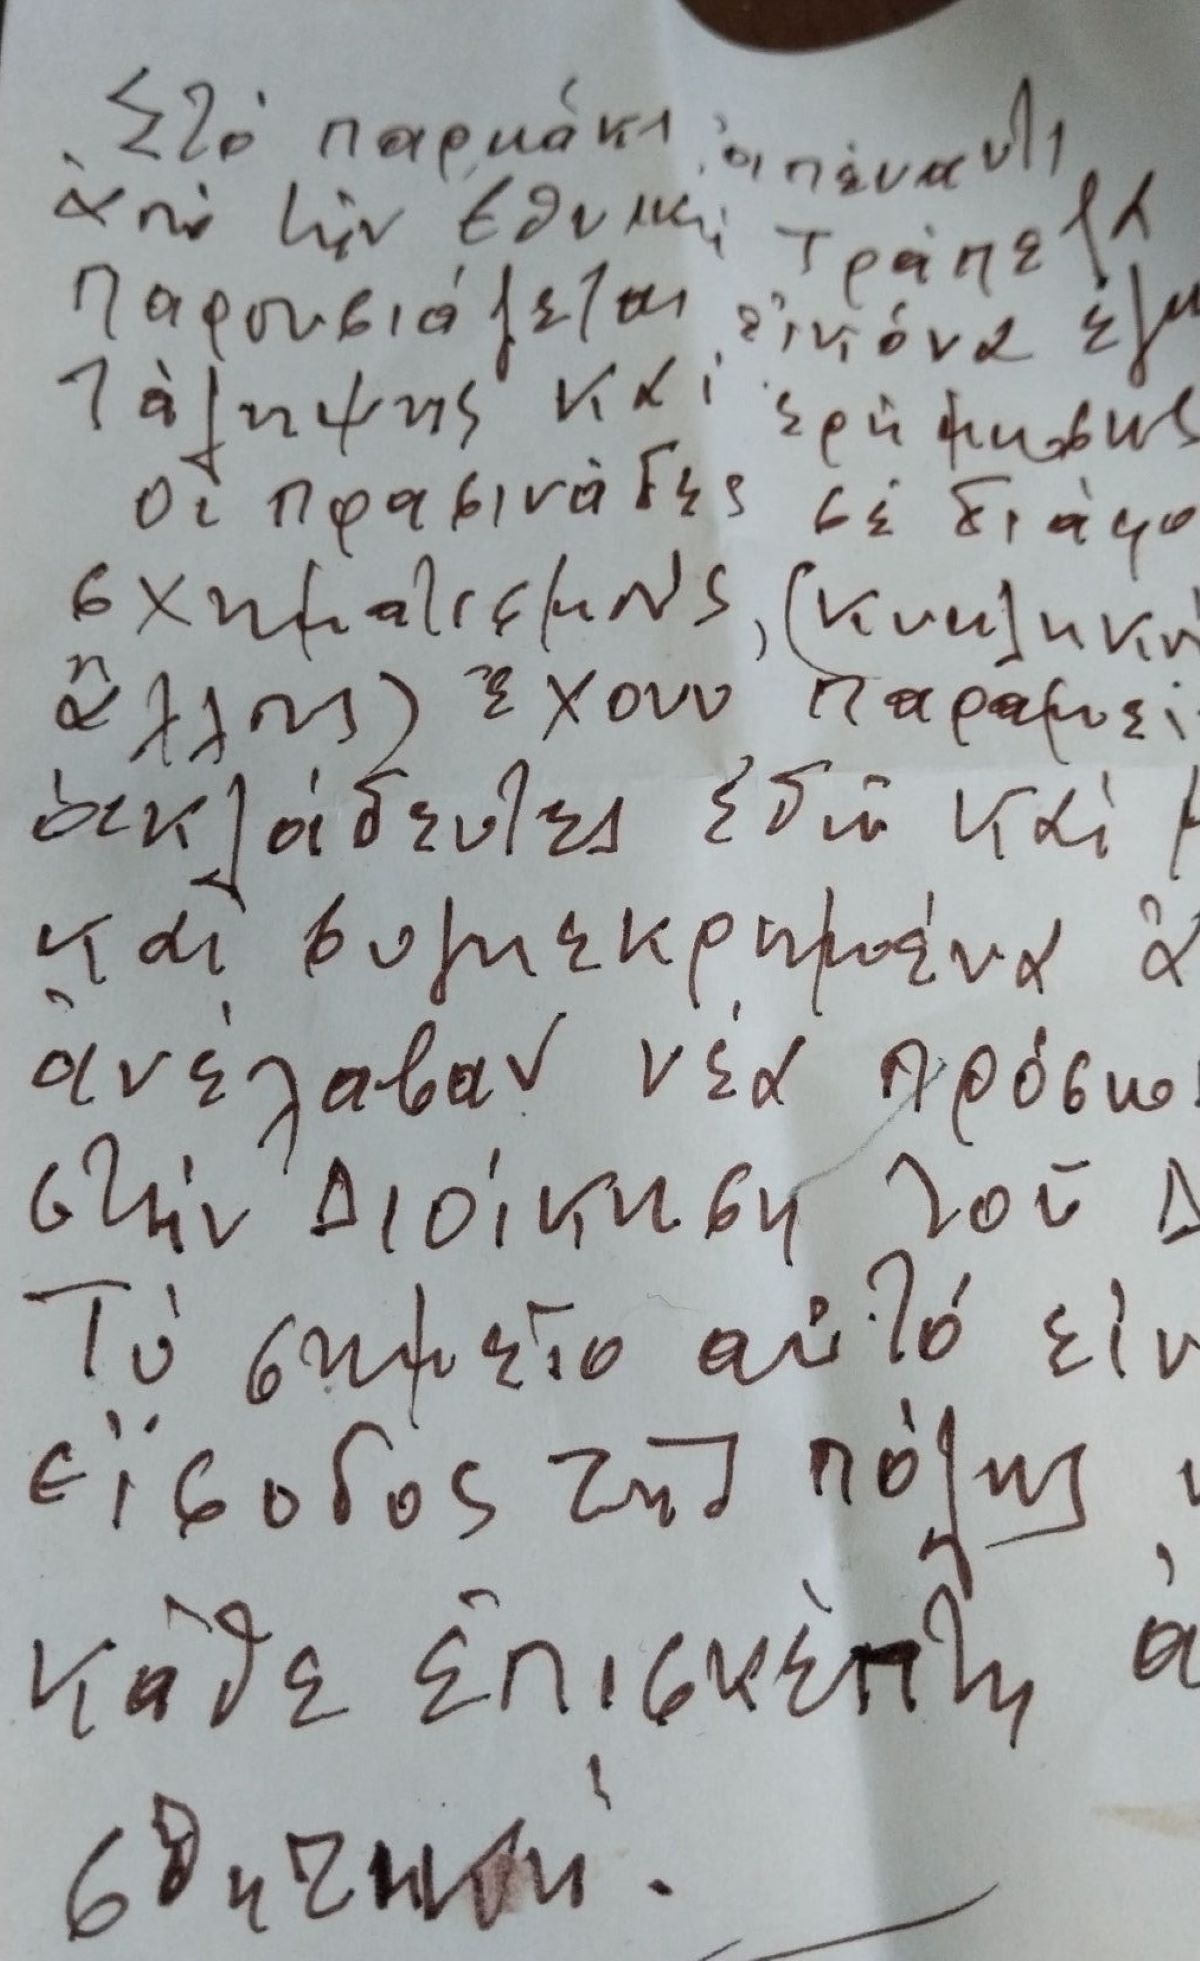 Στό παρκάκι ἀπέναντι
ἀπό τήν Ἐθνική Τράπεζα
παρουσιάζεται εἰκόνα ἐγκ
τάληψης καί ἐρήμωσης
οἱ πρασινάδες σέ διάφο
σχηματισμούς, (κυκλικού
ἄλλους) ἔχουν παραμεί
ἀκλάδευτες ἐδῶ καί μ
καί συγκεκρημένα ἀ
ἀνέλαβαν νέα πρόσω
στήν Διοίκηση τοῦ Δ
Τό σημεῖο αὐτό εἰν
εἴσοδος τῆς πόλης
κάθε ἐπισκέπτη ἀ